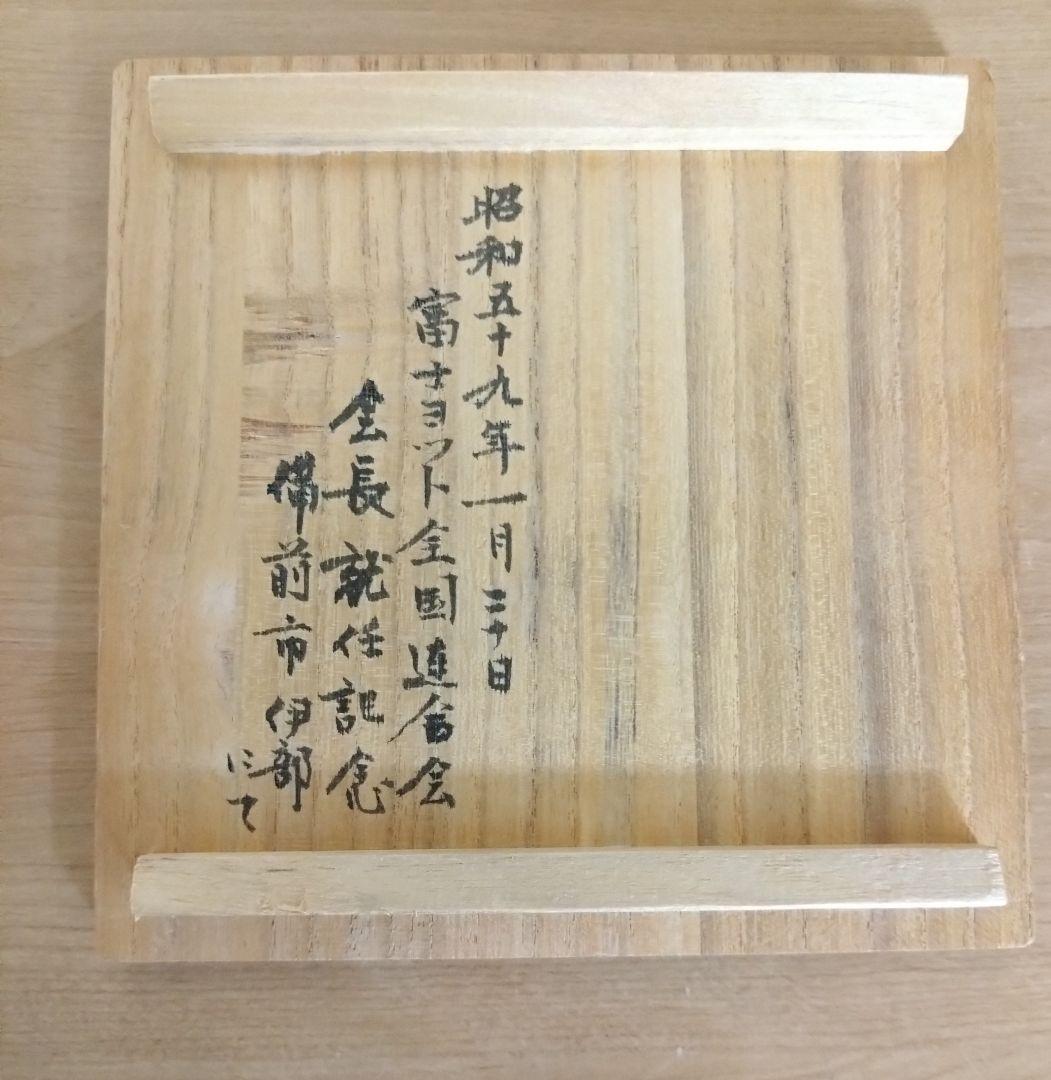 昭和五十九年一月二十日
富士ヨット全国連合会
会長就任記念
備前市伊部
にて